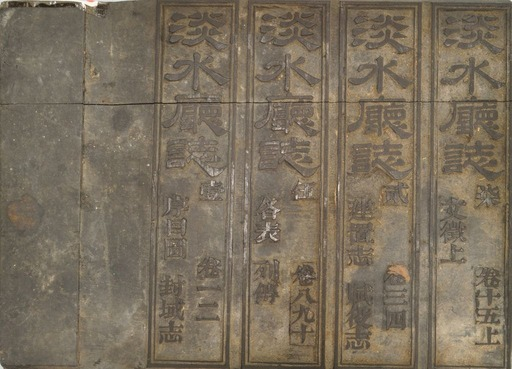 淡水廳誌
柒
文徵上
卷十五上
淡水廳誌
貳
建置志
卷三四
賦役志
淡水廳誌
伍
各表
卷八九十
列傳
淡水廳誌
壹
序目圖
卷一二
封域志